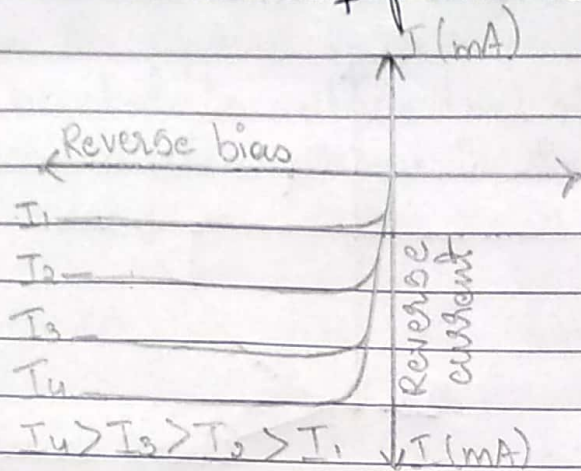 I (mA)
Reverse bias
I₁
I₂
I₃
I₄
Reverse
current
I₄ > I₃ > I₂ > I₁
I (mA)